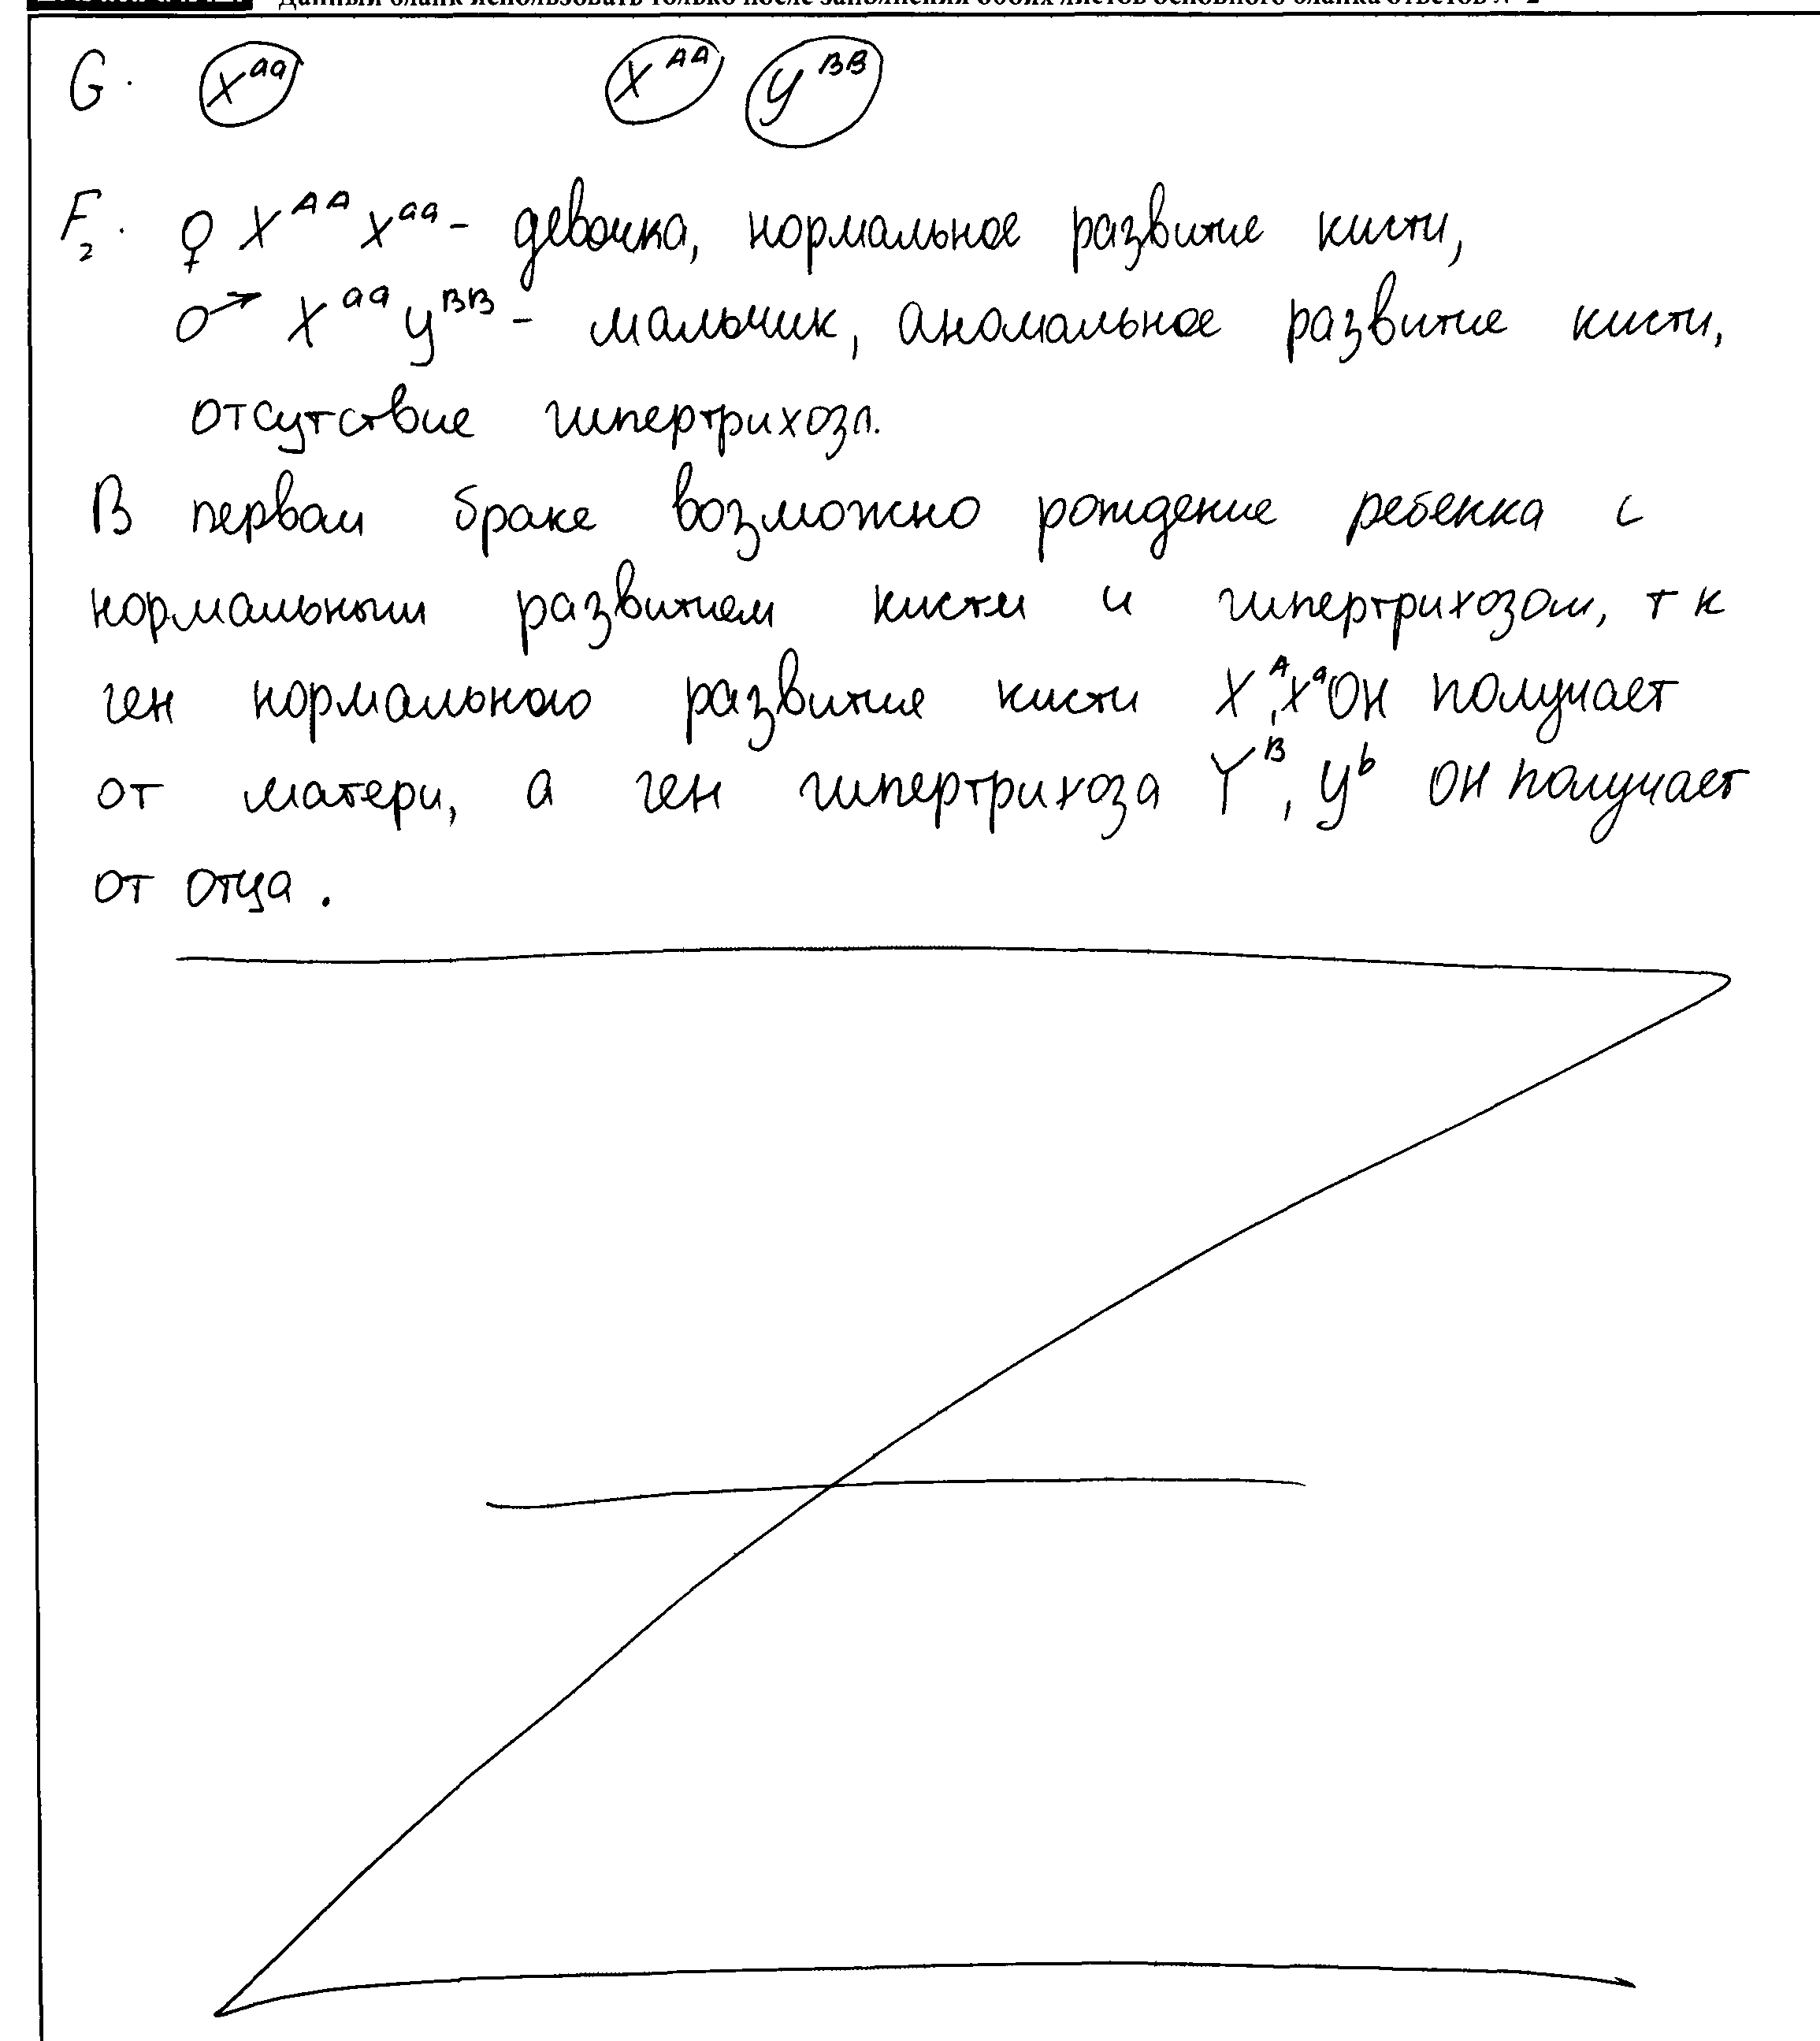 Данный бланк использовать только после заполнения обоих листов основного бланка ответов № 2
G. X^aa X^AA У^BB
F₂. ♀ X^AA X^aa - девочка, нормальное развитие кисти,
♂ X^aa У^BB - мальчик, аномальное развитие кисти,
отсутствие гипертрихоза.
В первом браке возможно рождение ребенка с
нормальным развитием кисти и гипертрихозом, т к
ген нормального развития кисти X^A, X^a он получает
от матери, а ген гипертрихоза Y^B, У^b он получает
от отца.